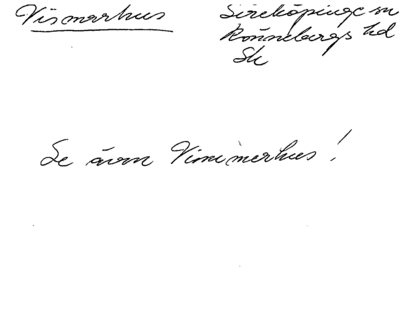 Vismarhus
Sireköpinge sn
Rönnebergs hd
Sk
Se även Vimmerhus!